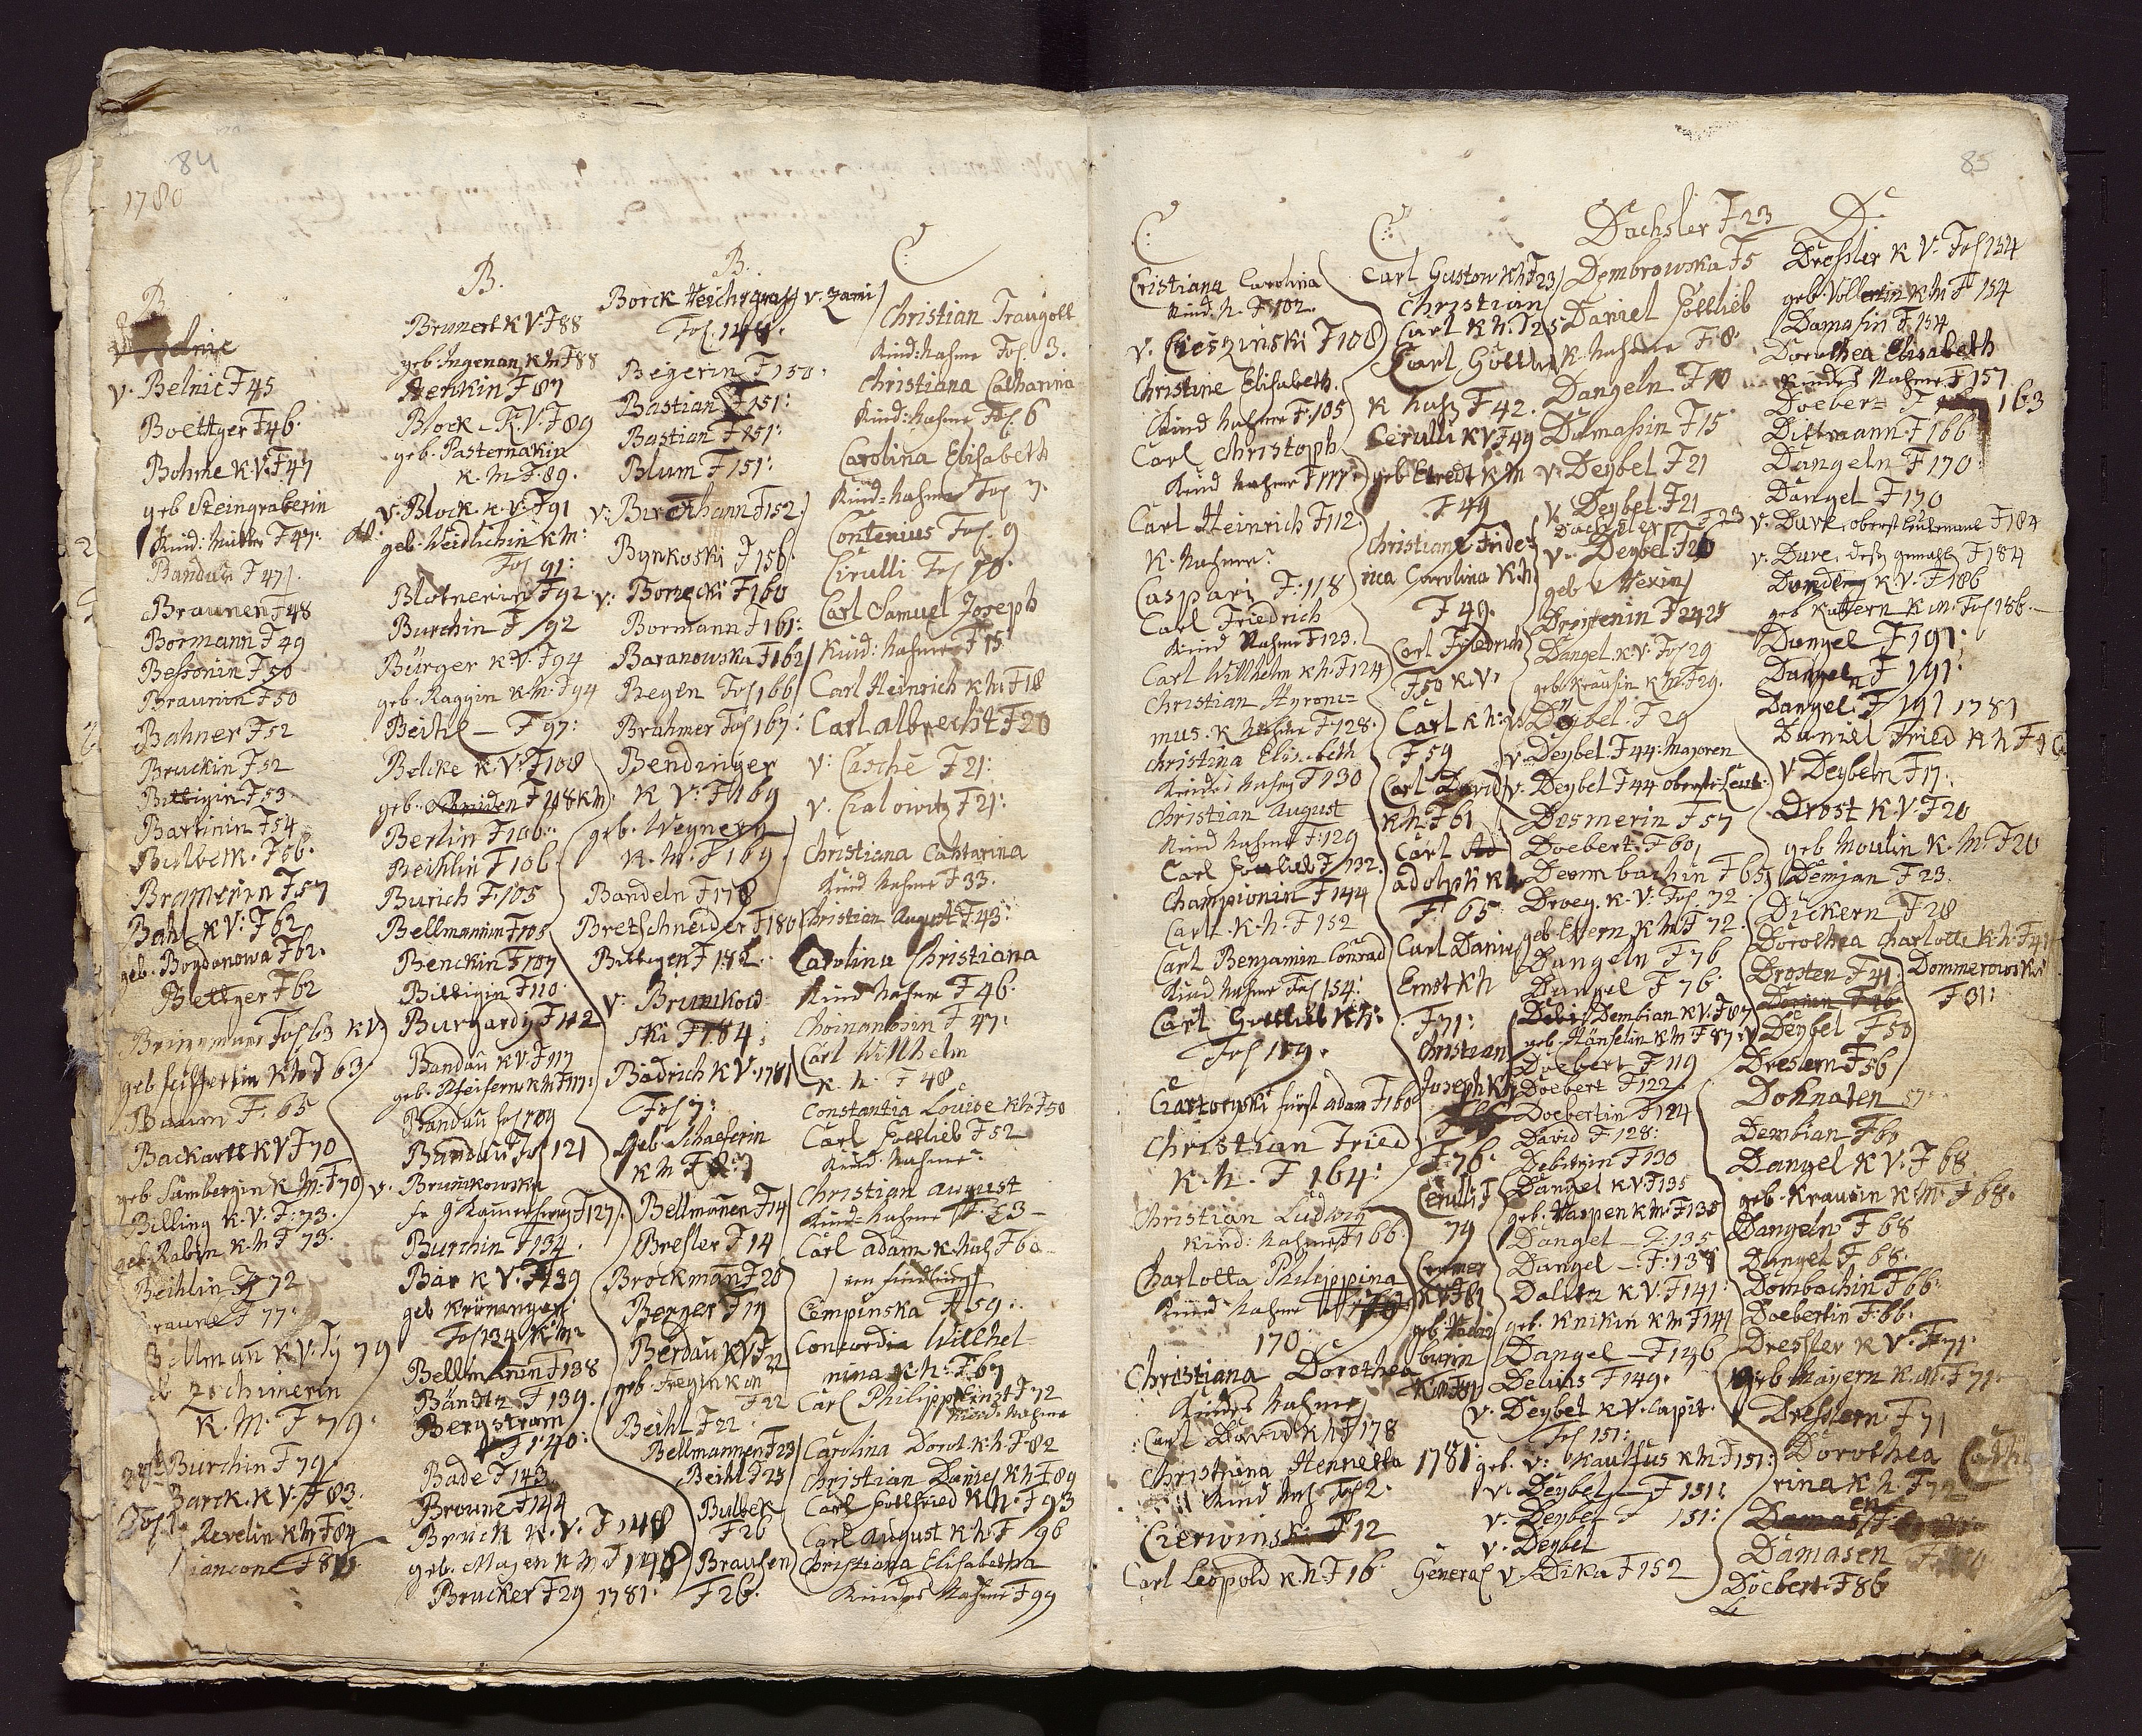 84
1780
B.
v. Belnic F45
Boettger F46.
Bohme K.V. F47
geb Steingraberin
Kind: Mutter F47:
Bandau F47
Braunen F48
Bormann F49
Bessonin F50
Braunin F50
Bahner F52
Bruckin F52
Bittigin F53.
Bartinin F54
Bulbeck. F56.
Bramerin F57
Bahl K V: F62
geb. Bogdanowa F62.
Bettger F62
Brinnmann Fol 63 KV
F 63
Baum F: 65
Backartt KV F70
geb Sambergin K M: F70
Billing K. V. F: 73.
geb. Rabin K. M F 73.
Beihlin F 72
F 77:
Bellman K V. F 79
K. M. F 79.
Burchin F 79.
Barck. K V. F 83.
Revelin K M F84
B.
Brunert K V. F88
geb. Ingenan K M F88
Henkin F 87
Block - K. V. F89
geb. Pasternakin
K. M F. 89.
v. Block K. V. F91
geb. Weidlichin K M:
Fol 91:
Blotnerin F92
Burchin F 92
Bürger K V. F94
geb. Raggin K M. F94
Beihl — F 97:
Belcke K. V: F108
geb. Schniden F108 KM
Berlin F106.
Beihlin F106.
Burich F. 105
Bellmannin F105
Benckin F107
Bittigin F110.
Burgardy F112
Bandau K V. F117
geb. Pfeifern K M F117:
Bandau fol 119
Bandau Fol 121
v. Brunikowska
F127.
Burchin F134.
Bär K V. F139
geb Krüningen
Fol 134 K M:
Bellmanin F138
Bändtz F 139.
Bergstrom
F 140:
Bade F 143
Broune F144
Bruck K. V. F 148
geb. Majen K M F 148
Brucker F29 1781:
B.
Borck Reichsgraff v. Zami
Fol. 148.
Begerin F 150.
Bastian F 151:
Bastian F 151:
Blum F 151:
v. Birckhann F152
Bynkoski F 156
v: Bornecki F160
Bormann F 161:
Baranowska F162
Begen Fol 166
Brahmer Fol 167:
Bendinger
K V: F169
geb. Wegnern
K. M. F 169.
Bandeln F178
Bretschneider F180
Bittigen F 182.
v: Brunikow
ski F184:
Bädrich K V. 1781
Fol 7:
geb Schaeferin
K M F 7
Bellmanen F14
Bresler F 14
Brockman F 20
Berger F19
Berdau K V F22
F22
Beihl F22
Bellmannen F23
Beihl F25
Bulbek
F 26
Brausen
F 26.
C.
Christian Traugott
Kind: Nahme Fol. 3.
Christiana Catharina
Kind: Nahme Fol. 6
Carolina Elisabeth
Kind=Nahme Fol 7.
Contenius Fol. 9
Cirulli Fol 10.
Carl Samuel Joseph
Kind: Nahme F 15
Carl Heinrich K N. F18
Carl albrecht F20
v: Casche F21:
v. Cralowitz F21:
Christiana Cattarina
Kind Nahme F 33.
Christian August F43:
Carolina Christiana
Kind Nahme F 46.
Choinanosin F 47:
Carl Willhelm
K. N. F 48
Constantia Louise K N F50
Carl Gottlieb F 52
Kind Nahme:
Christian august
Kind=Nahme F. 53 —
Carl adam K Nah F 60
ein findling
Cempinska F 59:
Concordia Willhel
mina K N: F. 67
Carl Philipp Ernst F 72
Kind: Nahme
Carolina Dorot. K. N. F. 82
Christian Daniel K N F89
Carl Gottfried K N. F 93
Carl August K. N. F 96
Christiana Elisabetha
Kindes Nahme F 99
85
C.
Cristiana Carolina
Kind N. F 102.
v. Cieszinski F108
Christine Elisabeth.
Kind Nahme F. 105
Carl Christoph
Kind Nahme F 111:
Carl Heinrich F112
K. Nahme:
Caspari F: 118
Carl Friedrich
Kind Nahm F 123.
Carl Willhelm K N. F124
Christian Hyroni=
mus. K Nahme F 128.
Christina Elisabeth
Kindes Nahm F 130
Christian August
Kind Nahme F: 129
Carl Gottlieb F 132.
Championin F 144
Carl. K. N. F 152
Carl Benjamin Conrad
Kind Nahme Fol 154:
Carl Gottlieb K N:
Fol 159.
Czartoryski fürst adam F160
Christian Fried
K. N. F 164:
Christian Ludwig
Kind: Nahme F 166
Charlotta Philippina
Kind Nahme
170:
Christiana Dorothea
Kindes Nahme
Carl David K N F178
Christina Hennetta 1781:
Kind Nah Fol 2.
Czerwinski F12
Carl Leopold K. N. F 16.
C.
Carl Gustow K N F23
Christian
Carl K N. F25
Carl Gottlieb
K Nahs F 42.
Cerulli K V F49
geb Etredt K M
F 49
Christiane Fride
rica Carrolina K N
F 49.
Carl Friedrich
F50 K. V.
Carl K N:
F 59
Carl David
K N. F61
Carl
adolph K N
F. 65
Carl Daniel
Ernst K N
F 71:
Christian
Joseph K N
F. 76.
Cerulli F
79
Cramer
K V F81
burin
K M F81
Dachsler F23
Dembrowska F5
Daniel Gottlieb
K. Nahme F 8.
Dangeln F 10
Damassin F15
v. Deybel F 21
v. Deybel. F 21
Dachsler F 23
v. Deybel F 20
geb v Hexin
Dorstenin F 24 25
Dangel. K V. Fol 29
geb. Krausin K M. F29.
v. Deybel. F 29
v. Deybel. F 44: Majoren
v. Deybel F 44 oberste Leut:
Dosmerin F 57
Doebert. F 60
Deermbachin F 65
Droeg. K. V. Fol. 72
geb Essern K M F 72.
Dangeln F 76
Dangel F 76.
Dembian K V. F87
geb. Hänselin K M F 87:
Doebert F 119
Doebert F 122.
Doebertin F 124
David F 128:
Debitgin F130
Dangel K V F135
geb. Harpen K M F135
Dangel — F. 135
Dangel — F. 138
Daltz K V. F141:
geb. Knikin K M F141
Dangel — F 146
Devins F 149.
v. Deybel K V. Capit.
Fol 151:
geb. v: Kaulfus K M F151:
v. Deybel — F 151:
v. Deybel F 151:
v. Deybel
General v. Dika F 152
D.
Dressler K V. Fol 154
geb. Vollertin K M F 154
Damasin F 154
Dorothea Elisabeth
Kindes Nahme F 157
Doebert F 163
Dittmann F 166
Dangeln F 170:
Dangel F 170
v. Dure, oberst Leutenant F184
v. Dure, dess gemahl F 184
K V. F 186
geb Kuttern K M. Fol 186.
Dangel F 191:
Dangeln F 191:
Dangel. F 191 1781
Daniel Fried K N F
v Deybeln F 17.
Drost K V. F20
geb Moulin K. M: F 20
Demjan F 23.
Dickern F 28
Dorothea Charlotte K N. F41
Drosten F 41. Dommerowska
F 31:
v Deybel F 50
Dreslern F 56
Dohnaten 57
Dembian F60
Dangel K V. F 68.
geb. Krausin K M. F 68.
Dangelns F 68
Dangel F 68.
Dombachin F 66.
Doebertin F. 66.
Dressler K V. F 71:
geb Mayern K. M. F 71.
Dresslern F 71
Dorothea Catha
rina K N. F 72
Damasen
Doebert. F 86